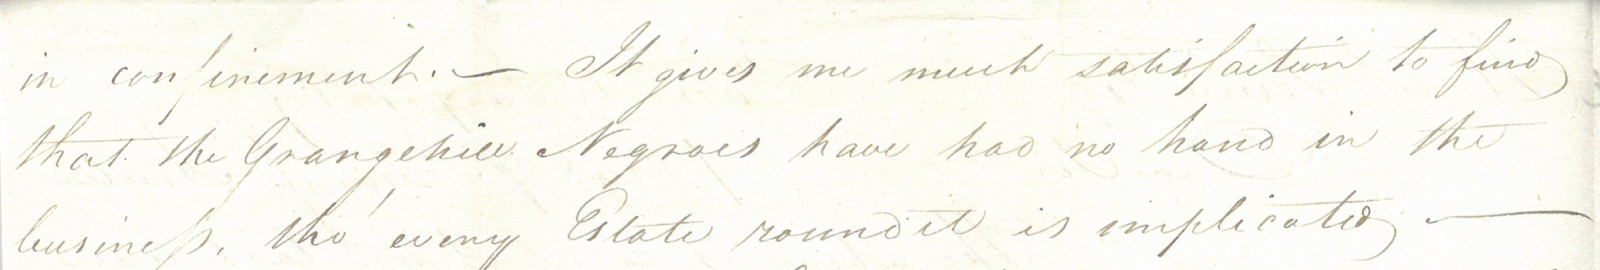 in confinement. — It gives me much satisfaction to find
that the Grangehill Negroes have had no hand in the
business, tho' every Estate round it is implicated —